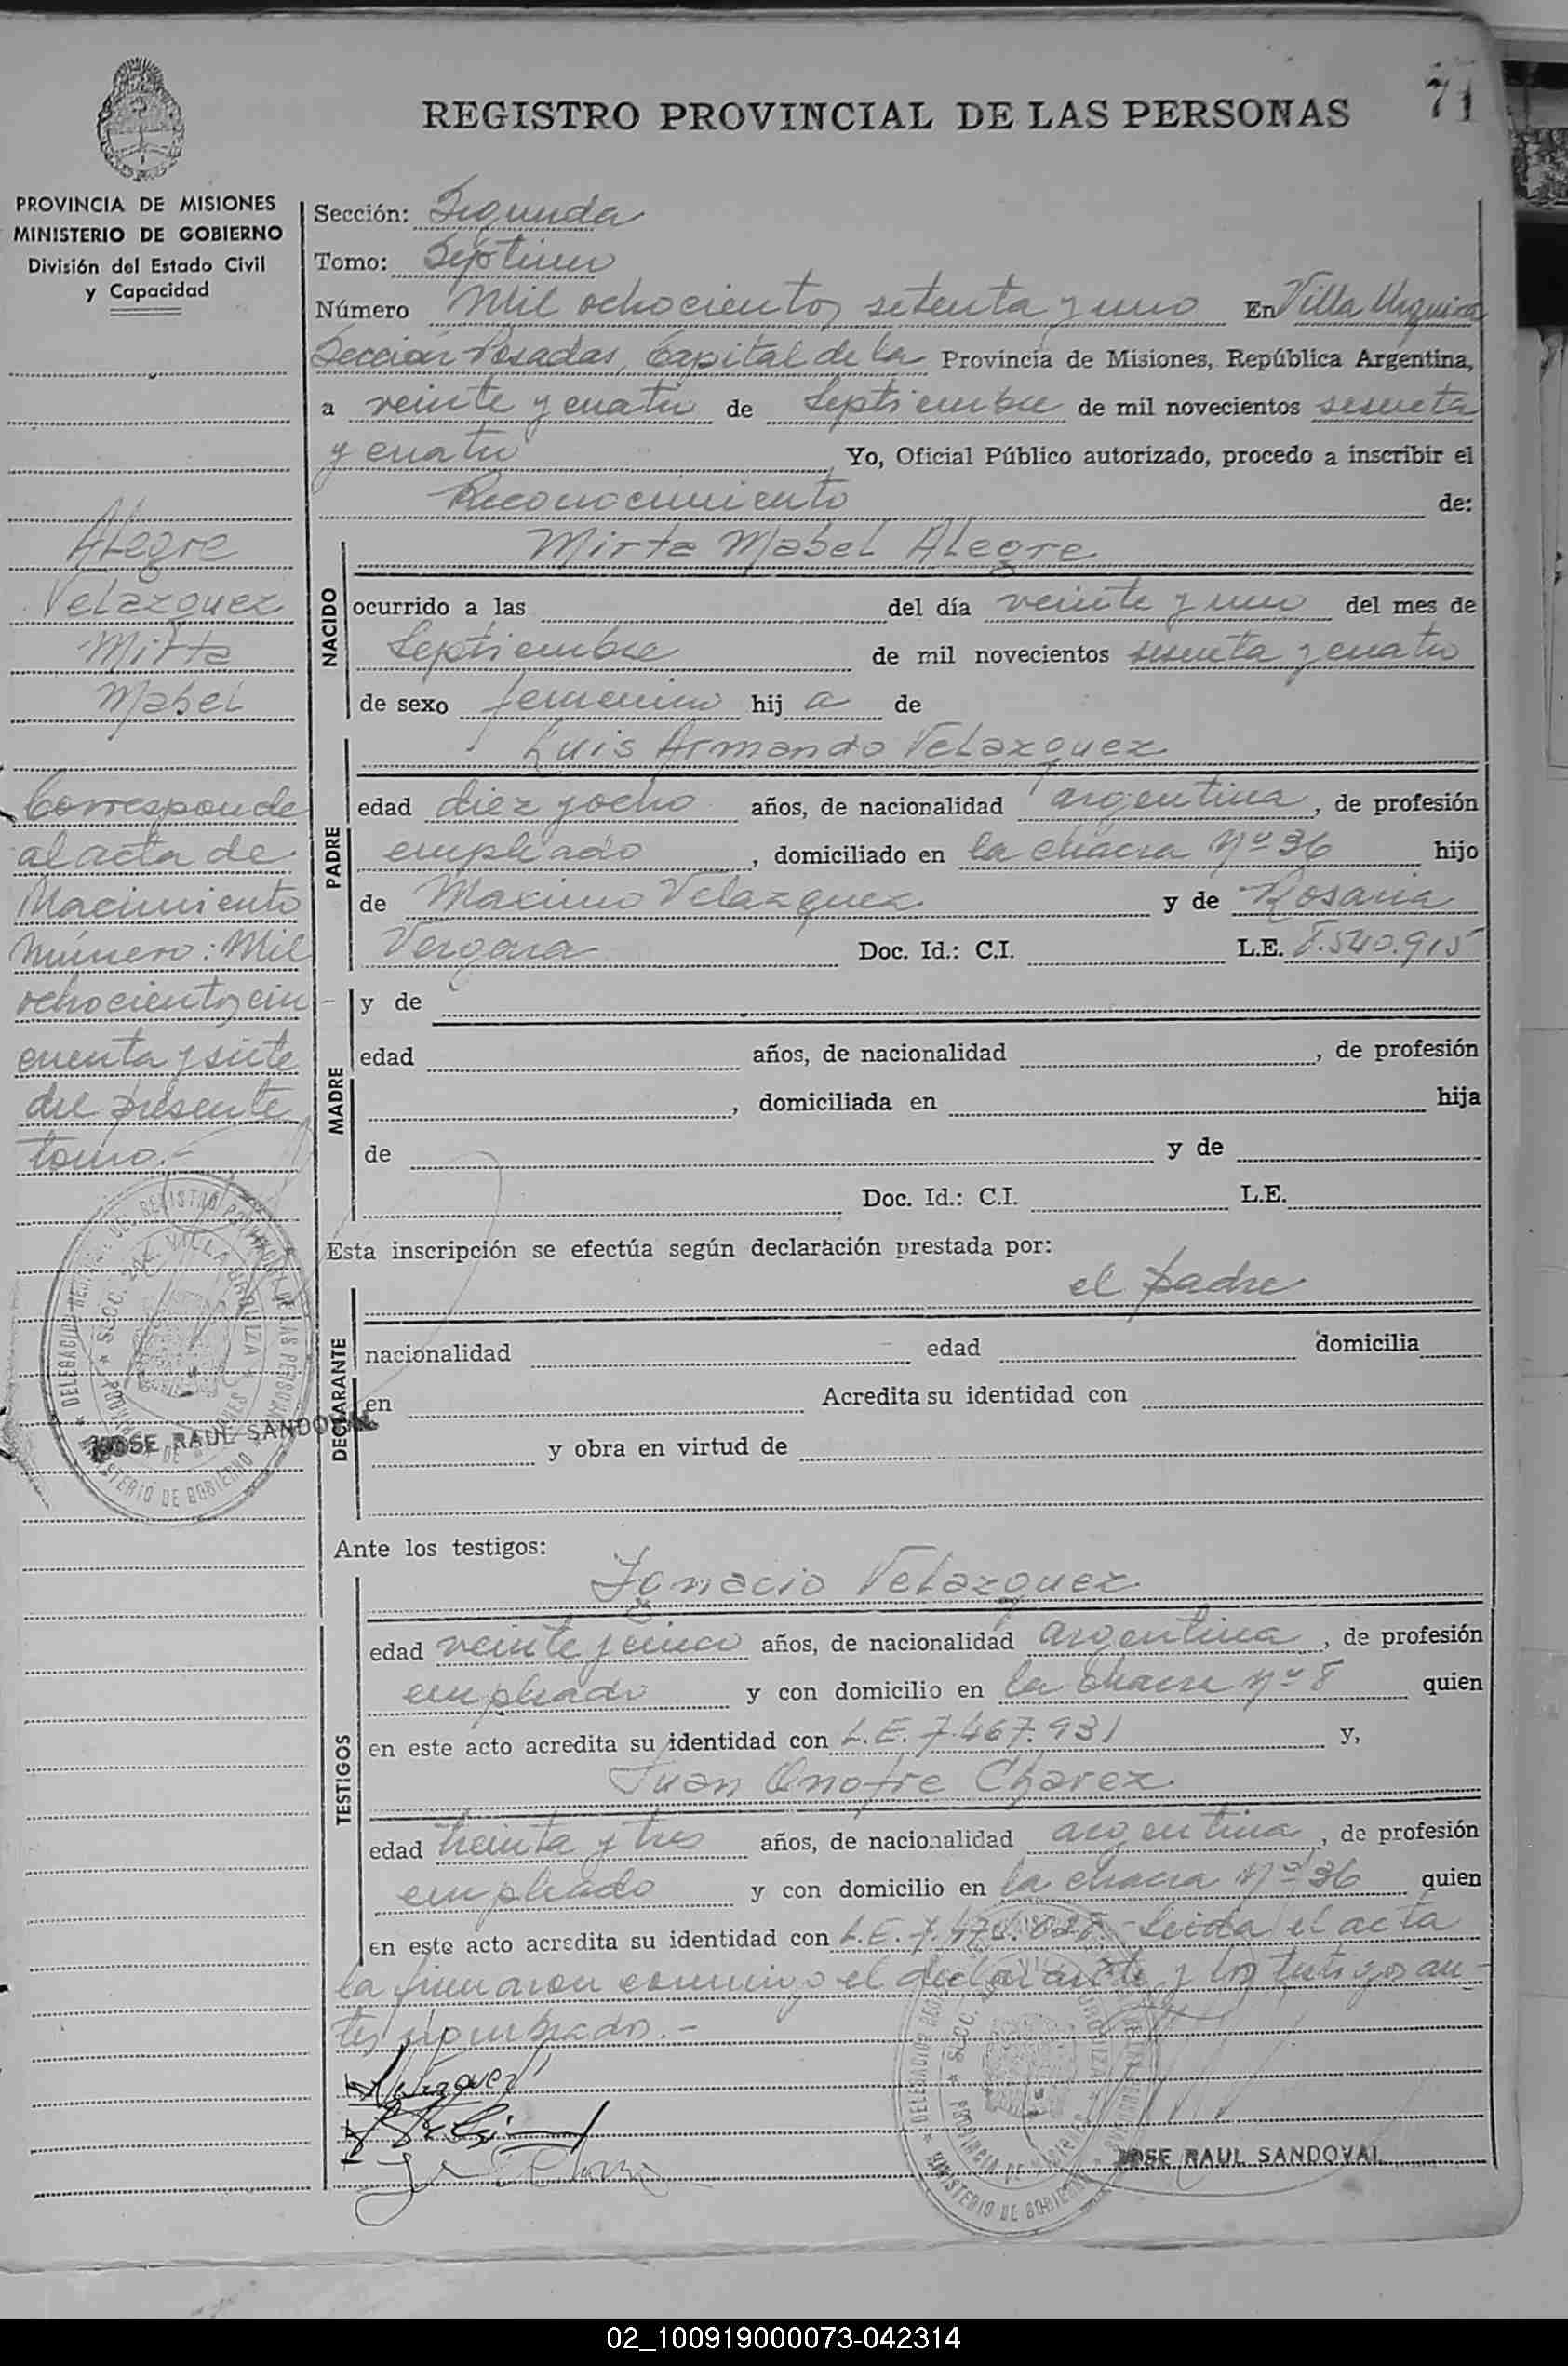 71
REGISTRO PROVINCIAL DE LAS PERSONAS
PROVINCIA DE MISIONES
MINISTERIO DE GOBIERNO
División del Estado Civil
y Capacidad
Alegre
Velazquez
Mirta
Mabel
Corresponde
al acta de
Nacimiento
Número: Mil
ochocientos cin-
cuenta y siete
del presente
tomo.-
JOSE RAUL SANDOVAL
Sección: Segunda
Tomo: Septimo
Número Mil ochocientos setenta y uno En Villa Urquiza
Sección Posadas, Capital de la Provincia de Misiones, República Argentina,
a veinte y cuatro de Septiembre de mil novecientos sesenta
y cuatro Yo, Oficial Público autorizado, procedo a inscribir el
Reconocimiento de:
NACIDO
Mirta Mabel Alegre
ocurrido a las del día veinte y uno del mes de
Septiembre de mil novecientos sesenta y cuatro
de sexo femenino hij a de
PADRE
Luis Armando Velazquez
edad diez y ocho años, de nacionalidad argentina, de profesión
empleado, domiciliado en la chacra Nº 36 hijo
de Maximo Velazquez y de Rosaria
Vergara Doc. Id.: C.I. L.E. 8.540.915
MADRE
y de
edad años, de nacionalidad , de profesión
, domiciliada en hija
de y de
Doc. Id.: C.I. L.E.
Esta inscripción se efectúa según declaración prestada por:
DECLARANTE
el padre
nacionalidad edad domicilia
en Acredita su identidad con
y obra en virtud de
Ante los testigos:
TESTIGOS
Ignacio Velazquez
edad veinte y cinco años, de nacionalidad argentina, de profesión
empleado y con domicilio en la chacra Nº 8 quien
en este acto acredita su identidad con L.E. 7.467.931 y,
Juan Onofre Chavez
edad treinta y tres años, de nacionalidad argentina, de profesión
empleado y con domicilio en la chacra Nº 36 quien
en este acto acredita su identidad con L.E. Leida el acta
la firmaron conmigo el declarante y los testigos an-
tes nombrados.-
JOSE RAUL SANDOVAL
02_100919000073-042314